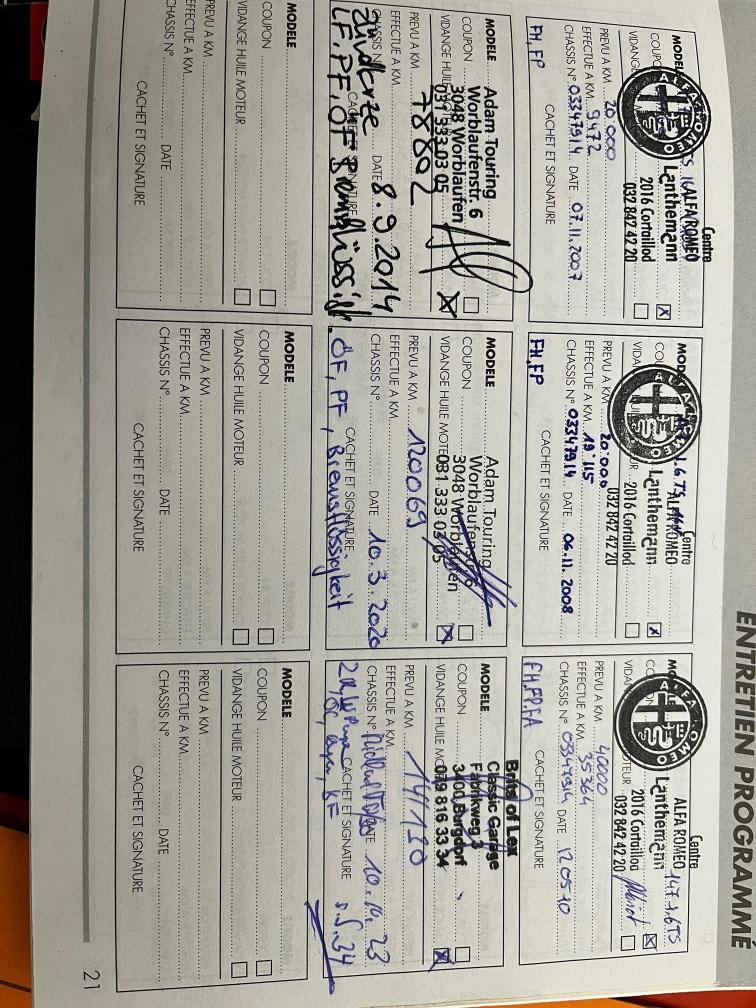 ENTRETIEN PROGRAMMÉ
MODELE
Centre
ALFA ROMEO
Lanthemann
2016 Cortaillod
032 842 42 20
COUPON
X
VIDANGE
PREVU A KM 20.000
EFFECTUE A KM 9472
CHASSIS N° 03347914 DATE 07.11.2007
CACHET ET SIGNATURE
FH, FP
ALFA ROMEO
MODELE
Centre
ALFA ROMEO
Lanthemann
2016 Cortaillod
032 842 42 20
X
PREVU A KM 20.000
EFFECTUE A KM 19'115
CHASSIS N° 03347914 DATE 06.11.2008
CACHET ET SIGNATURE
FH, FP
ALFA ROMEO
Centre
ALFA ROMEO 147 1.6TS
Lanthemann
2016 Cortaillod
032 842 42 20
X
PREVU A KM 40000
EFFECTUE A KM 35364
CHASSIS N° 03347914 DATE 12 05 10
CACHET ET SIGNATURE
FH, FP, FA
ALFA ROMEO
MODELE
Adam Touring
Worblaufenstr. 6
3048 Worblaufen
031 333 03 05
COUPON
VIDANGE HUILE
X
PREVU A KM 78802
EFFECTUE A KM
CHASSIS N° DATE 8.9.2014
Zündkerze
CACHET ET SIGNATURE
LF, PF, ÖF Bremsflüssigk.
MODELE
Adam Touring
Worblaufenstr. 6
3048 Worblaufen
031 333 03 05
COUPON
VIDANGE HUILE MOTEUR
X
PREVU A KM
EFFECTUE A KM 120069
CHASSIS N° DATE 10.3.2020
CACHET ET SIGNATURE
ÖF, PF, Bremsflüssigkeit
MODELE
Brits of Lex
Classic Garage
Fabrikweg 3
3400 Burgdorf
079 816 33 34
COUPON
VIDANGE HUILE MO
X
PREVU A KM 141130
EFFECTUE A KM
CHASSIS N° DATE 10.10.23
CACHET ET SIGNATURE
s.S.34
MODELE
COUPON
VIDANGE HUILE MOTEUR
PREVU A KM
EFFECTUE A KM
CHASSIS N° DATE
CACHET ET SIGNATURE
MODELE
COUPON
VIDANGE HUILE MOTEUR
PREVU A KM
EFFECTUE A KM
CHASSIS N° DATE
CACHET ET SIGNATURE
MODELE
COUPON
VIDANGE HUILE MOTEUR
PREVU A KM
EFFECTUE A KM
CHASSIS N° DATE
CACHET ET SIGNATURE
21